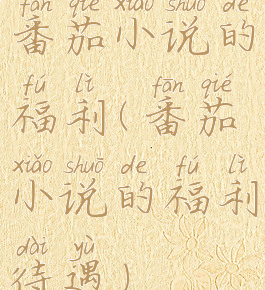 fān qié xiǎo shuō de
番茄小说的
fú lì fān qié
福利(番茄
xiǎo shuō de fú lì
小说的福利
dài yù
待遇)